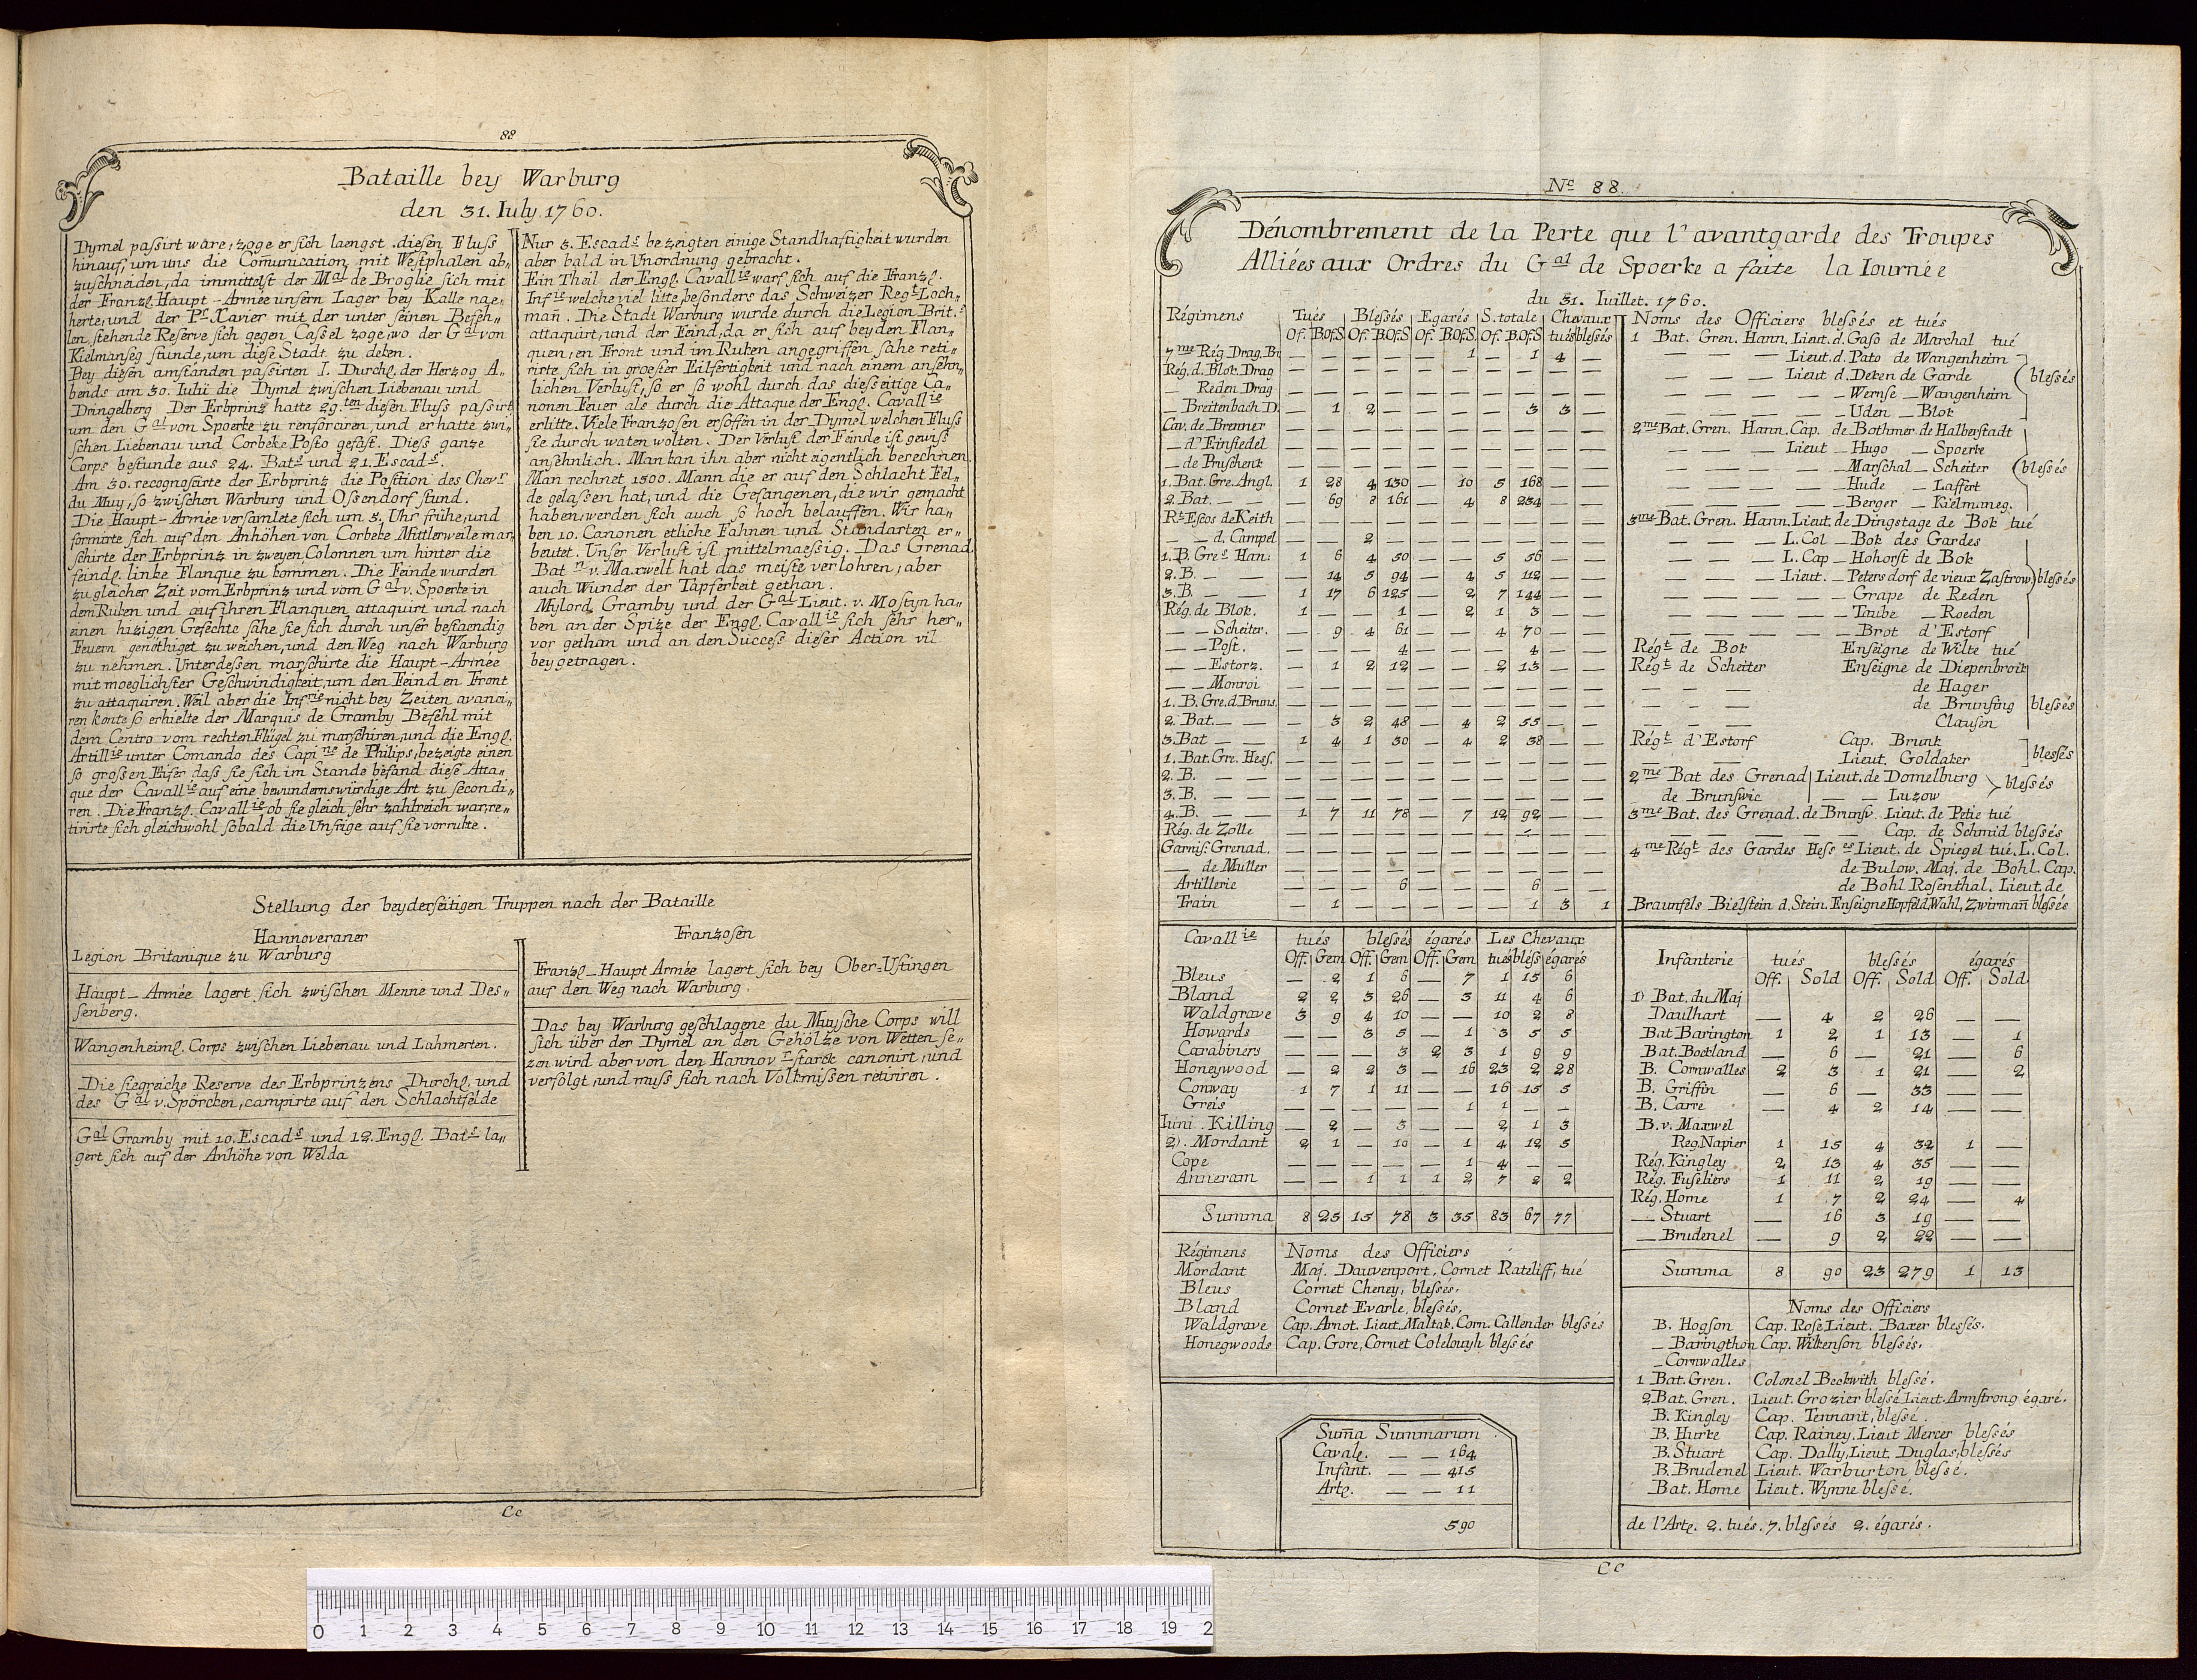 88
Bataille bey Warburg
den 31. Iuly 1760.
Dymel paſsirt wäre, zoge er ſich laengst dieſen Fluſs
hinauf, um uns die Com̄unication mit Weſtphalen ab„
zuſchneiden, da immittelſt der Mal de Broglie ſich mit
der Franzl. Haupt-Armée unſern Lager bey Kalle nae„
herte, und der Pr. Xavier mit der unter ſeinen Befeh„
len ſtehende Reſerve ſich gegen Caſsel zoge, wo der Gal von
Kielmanſeg ſtunde, um dieſe Stadt zu deken.
Bey dieſen amſtänden paſsirten I. Durchl. der Herzog A„
bends am 30. Iulii die Dymel zwiſchen Liebenau und
Dringelberg Der Erbprinz hatte 29.ten dieſen Fluſs paſsirt
um den Gal von Spoerke zu renforciren, und er hatte zwi„
ſchen Liebenau und Corbeke Poſto gefaſt. Dieſs ganze
Corps beſtunde aus 24. Bats und 21. Escads.
Am 30. recognoſcirte der Erbprinz die Poſition des Chevr
du Muy, ſo zwiſchen Warburg und Oſsendorf ſtund.
Die Haupt-Armée verſamlete ſich um 5. Uhr frühe, und
formirte ſich auf den Anhöhen von Corbeke Mittlerweile mar„
ſchirte der Erbprinz in zweyen Colonnen um hinter die
feindl. linke Flanque zu kommen. Die Feinde wurden
zu gleicher Zeit vom Erbprinz und vom Gal v. Spoerke in
dem Ruken und auf ihren Flanquen attaquirt und nach
einen hizigen Gefechte ſahe ſie ſich durch unſer beſtaendig
Feuern genöthiget zu weichen, und den Weg nach Warburg
zu nehmen. Unterdeſsen marſchirte die Haupt-Armee
mit moeglichſter Geſchwindigkeit, um den Feind en Front
zu attaquiren. Weil aber die Infrie nicht bey Zeiten avanci„
ren konte ſo erhielte der Marquis de Gramby Befehl mit
dem Centro vom rechten Flügel zu marſchiren, und die Engl.
Artillie unter Comando des Capi ns de Philips, bezeigte einen
ſo groſsen Eifer daſs ſie ſich im Stande befand dieſe Atta„
que der Cavallie auf eine bewundernswürdige Art zu ſecondi„
ren. Die Franzl. Cavallie ob ſie gleich ſehr zahlreich war, re„
tirirte ſich gleichwohl ſobald die Unſrige auf ſie vorrukte.
Nur 3. Escads bezeigten einige Standhaftigkeit wurden
aber bald in Unordnung gebracht.
Ein Theil der Engl. Cavallie warf ſich auf die Franzl.
Infie welche viel litte, beſonders das Schweizer Regt. Loch„
man̄. Die Stadt Warburg wurde durch die Legion Brit.e
attaquirt, und der Feind, da er ſich auf beyden Flan„
quen, en Front und im Ruken angegriffen ſahe reti„
rirte ſich in groeſter Eilfertigkeit und nach einem anſehn„
lichen Verluſt, ſo er ſo wohl durch das dieſseitige Ca„
nonen Feuer als durch die Attaque der Engl. Cavallie
erlitte. Viele Franzoſen erſoffen in der Dymel welchen Fluſs
ſie durch waten wolten. Der Verluſt der Feinde iſt gewiſs
anſehnlich. Man kan ihn aber nicht eigentlich berechnen
Man rechnet 1500. Mann die er auf den Schlacht Fel„
de gelaſsen hat, und die Gefangenen, die wir gemacht
haben, werden ſich auch ſo hoch belauffen. Wir ha„
ben 10. Canonen etliche Fahnen und Standarten er„
beutet. Unſer Verluſt iſt mittelmaeſsig. Das Grenad.
Bat n v. Maxwelt hat das meiſte verlohren, aber
auch Wunder der Tapferkeit gethan.
Mylord Gramby und der Gal Lieut. v. Moſtyn ha„
ben an der Spize der Engl. Cavallie ſich ſehr her„
vor gethan und an den Succeſs dieſer Action vil
beygetragen.
Stellung der beyderſeitigen Truppen nach der Bataille
Hannoveraner
Legion Britanique zu Warburg
Haupt-Armée lagert ſich zwiſchen Menne und Deſ„
ſenberg.
Wangenheiml. Corps zwiſchen Liebenau und Lahmerten.
Die ſiegreiche Reserve des Erbprinzens Durchl. und
des Gal v. Spörcken, campirte auf den Schlachtfelde
Gal Gramby mit 10. Escads und 12. Engl. Bats la„
gert ſich auf der Anhöhe von Welda
Franzoſen
Franzl-Haupt Armée lagert ſich bey Ober-Uſingen
auf den Weg nach Warburg.
Das bey Warburg geſchlagene du Muyſche Corps will
ſich über der Dymel an den Gehölze von Wetten ſe„
zen wird aber von den Hannov r ſtarck canonirt, und
verfolgt, und muſs ſich nach Volkmiſsen retiriren.
Cc
No 88.
Dénombrement de la Perte que l'avantgarde des Troupes
Alliées aux Ordres du Gal de Spoerke a faite la Iournée
du 31. Iuillet. 1760.
Régimens Tués Bleſsés Egarés S. totale Chevaux
Of. B.Of.S Of. B.Of.S Of. B.Of.S Of. B.Of.S tués bleſsés
7me Rég. Drag. Br — — — — — 1 — 1 4 —
Rég. d. Blok. Drag — — — — — — — — — —
— Reden Drag — — — — — — — — — —
— Breitenbach D. — 1 2 — — — — 3 3 —
Cav. de Brenner — — — — — — — — — —
— d'Einſiedel — — — — — — — — — —
— de Pruſchenk — — — — — — — — — —
1. Bat. Gre. Angl. 1 28 4 130 — 10 5 168 — —
2. Bat. — — — 69 8 161 — 4 8 234 — —
Rt Eſcos de Keith — — — — — — — — — —
— — d. Campel — — 2 — — — — — — —
1. B. Gres Han. 1 6 4 50 — — 5 56 — —
2. B. — — — 14 5 94 — 4 5 112 — —
3. B. — — 1 17 6 125 — 2 7 144 — —
Rég. de Blok. 1 — — 1 — 2 1 3 — —
— — Scheiter. — 9 4 61 — — 4 70 — —
— — Poſt. — — — 4 — — — 4 — —
— — Estorz. — 1 2 12 — — 2 13 — —
— — Monroi — — — — — — — — — —
1. B. Gre. d. Bruns. — — — — — — — — — —
2. Bat. — — — 3 2 48 — 4 2 55 — —
3. Bat — — 1 4 1 30 — 4 2 38 — —
1. Bat. Gre. Heſſ. — — — — — — — — — —
2. B. — — — — — — — — — — — —
3. B. — — — — — — — — — — — —
4. B. — — 1 7 11 78 — 7 12 92 — —
Rég. de Zolle — — — — — — — — — —
Garniſ. Grenad. — — — — — — — — — —
— de Muller — — — — — — — — — —
Artillerie — — — 6 — — — 6 — —
Train — 1 — — — — — 1 3 1
Noms des Officiers bleſsés et tués
1 Bat. Gren. Hann. Lieut. d. Gaſo de Marchal tué
— — — Lieut. d. Pato de Wangenheim
— — — Lieut d. Deken de Garde bleſsés
— — — — Wernſe — Wangenheim
— — — — Uden — Blok
2me Bat. Gren. Hann. Cap. de Bothmer de Halberſtadt
— — — Lieut — Hugo — Spoerke
— — — — Marſchal — Scheiter bleſsés
— — — — Hude — Laffert
— — — — Berger — Kielmaneg.
3me Bat. Gren. Hann. Lieut. de Dingstage de Bok tué
— — — L. Col — Bok des Gardes
— — — L. Cap — Hohorſt de Bok
— — — Lieut. — Petersdorf de vieux Zaſtrow bleſsés
— — — — Grape de Reden
— — — — Taube — Roeden
— — — — Brot d'Estorf
Régt. de Bok Enſeigne de Wilte tué
Régt. de Scheiter Enſeigne de Diepenbroik
— — — de Hager
— — — de Brunſing bleſsés
— — — Clauſen
Régt. d'Estorf Cap. Brunk
— — Lieut. Goldaker bleſsés
2me Bat des Grenad Lieut. de Domelburg
de Brunſwic — — Luzow bleſsés
3me Bat. des Grenad. de Brunſv. Lieut. de Petie tué
— — — — — Cap. de Schmid bleſsés
4me Régt des Gardes Heſs es Lieut. de Spiegel tué, L. Col.
de Bulow. Maj. de Bohl. Cap.
de Bohl Roſenthal. Lieut. de
Braunfels Bielſtein d. Stein. Enſeigne Hopfeld, Wahl, Zwirman̄ bleſsés
Cavallie tués bleſsés égarés Les Chevaux
Off. Gem Off. Gem Off. Gem tués bleſs égarés
Bleus — 2 1 6 — 7 1 15 6
Bland 2 2 3 26 — 3 11 4 6
Waldgrave 3 9 4 10 — — 10 2 8
Howards — — 3 5 — 1 3 5 5
Carabiners — — — 3 2 3 1 9 9
Honeywood — 2 2 3 — 16 23 2 28
Conway 1 7 1 11 — — 16 15 5
Greis — — — — — 1 1 — —
Iuni. Killing — 2 — 3 — — 2 1 3
2). Mordant 2 1 — 10 — 1 4 12 5
Cope — — — — — 1 4 — —
Anneram — — 1 1 1 2 7 2 2
Summa 8 25 15 78 3 35 83 67 77
Régimens Noms des Officiers
Mordant Maj. Dauvenport, Cornet Ratcliff, tué
Bleus Cornet Cheney, bleſsés.
Bland Cornet Evarle, bleſsés,
Waldgrave Cap. Arnot. Lieut. Maltak, Corn. Callender bleſsés
Honegwoods Cap. Gore, Cornet Colelouyh bleſsés
Sum̄a Summarum
Cavall. — — 164
Infant. — — 415
Artl. — — 11
590
Infanterie tués bleſsés égarés
Off. Sold Off. Sold Off. Sold.
1) Bat. du Maj
Daulhart — 4 2 26 — —
Bat Barington 1 2 1 13 — 1
Bat. Bockland — 6 — 21 — 6
B. Cornwalles 2 3 1 21 — 2
B. Griffin — 6 — 33 — —
B. Carre — 4 2 14 — —
B. v. Maxwel
Reg. Napier 1 15 4 32 1 —
Rég. Kingley 2 13 4 35 — —
Rég. Fuſeliers 1 11 2 19 — —
Rég. Home 1 7 2 24 — 4
— Stuart — 16 3 19 — —
— Brudenel — 9 2 22 — —
Summa 8 90 23 279 1 13
Noms des Officiers
B. Hogſon Cap. Roſe Lieut. Baxer bleſsés.
— Baringthon Cap. Wilkenſon bleſsés.
— Cornwalles
1 Bat. Gren. Colonel Beckwith bleſsé.
2 Bat. Gren. Lieut. Grozier bleſsé Lieut. Armſtrong égaré.
B. Kingley Cap. Tennant, bleſsé.
B. Hurke Cap. Rainey, Lieut Mercer bleſsés
B. Stuart Cap. Dally, Lieut. Duglas, bleſsés
B. Brudenel Lieut. Warburton bleſsé.
Bat. Home Lieut. Wynne bleſsé.
de l'Artl. 2. tués. 7. bleſsés 2. égarés.
Cc
0 1 2 3 4 5 6 7 8 9 10 11 12 13 14 15 16 17 18 19 2